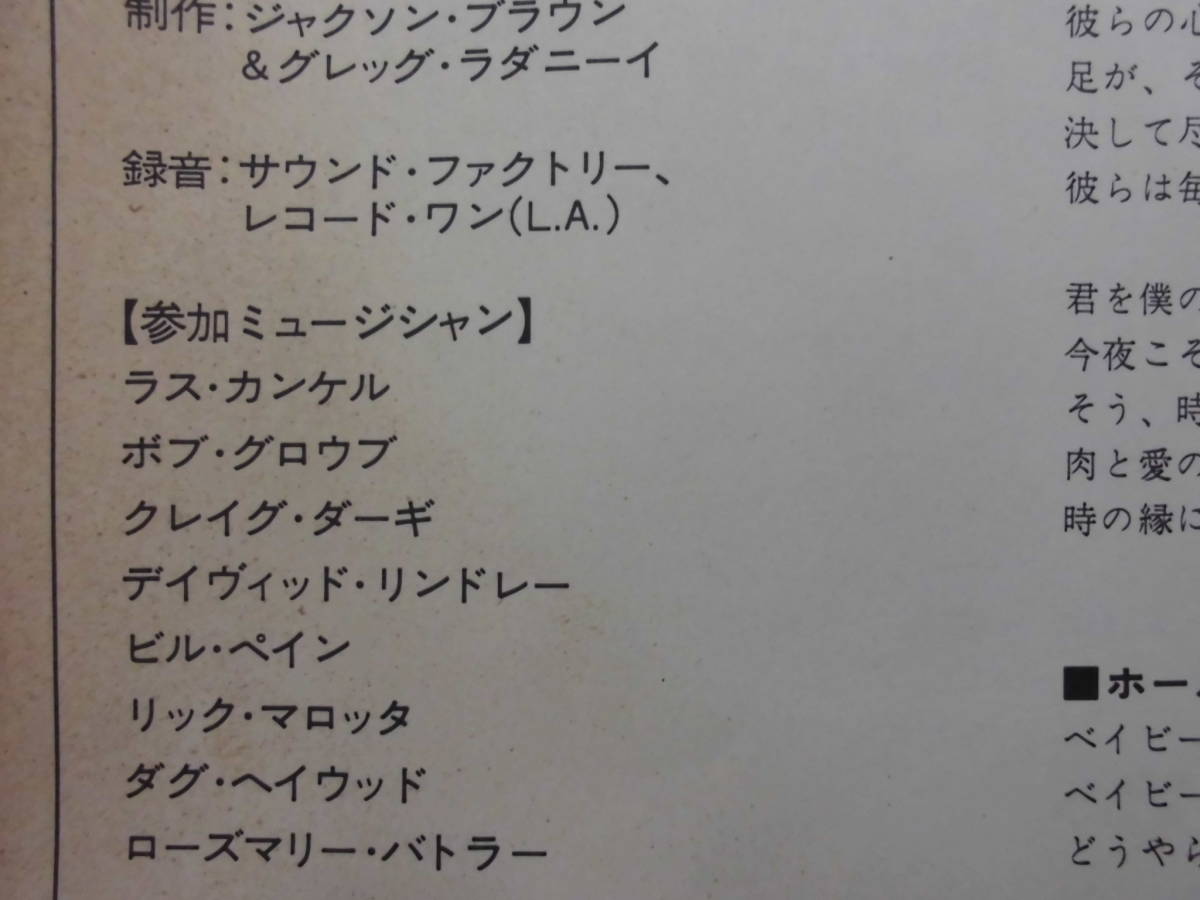 制作：ジャクソン・ブラウン
＆グレッグ・ラダニーイ
録音：サウンド・ファクトリー、
レコード・ワン(L.A.)
【参加ミュージシャン】
ラス・カンケル
ボブ・グロウブ
クレイグ・ダーギ
デイヴィッド・リンドレー
ビル・ペイン
リック・マロッタ
ダグ・ヘイウッド
ローズマリー・バトラー
彼らの心
足が、そ
決して尽
彼らは毎
君を僕の
今夜こそ
そう、時
肉と愛の
時の縁に
■ホー
ベイビー
ベイビー
どうやら